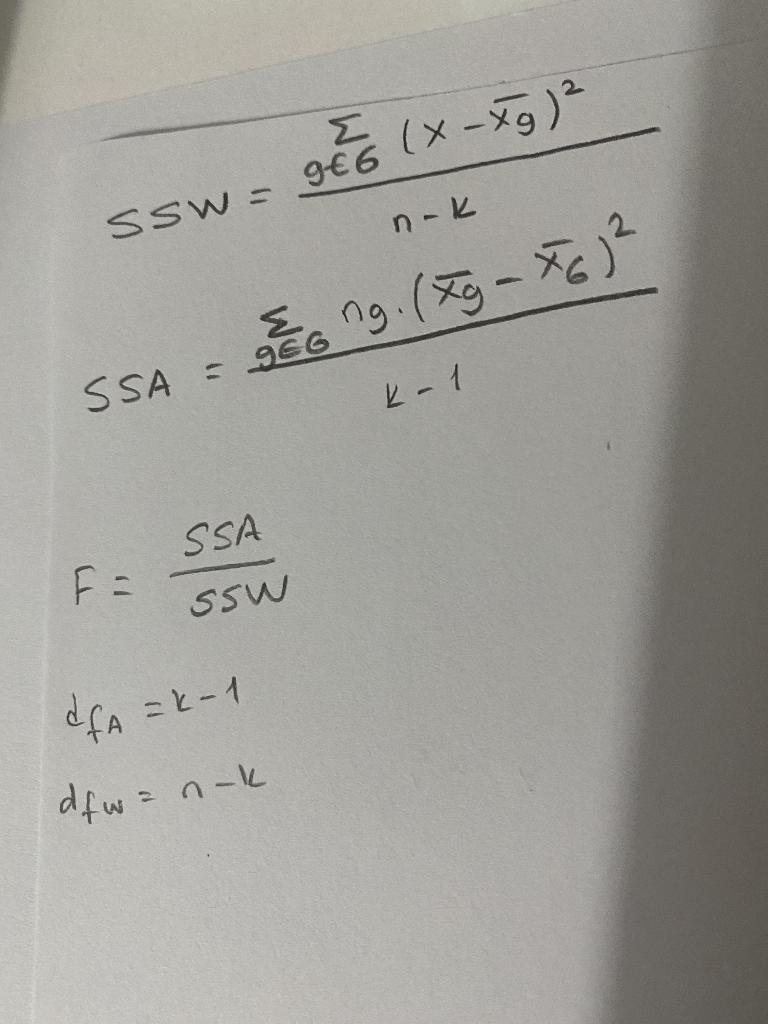 SSW = Σ g∈G (x - x̄g)² / n - k
SSA = Σ g∈G ng · (x̄g - x̄G)² / k - 1
F = SSA / SSW
dfA = k - 1
dfw = n - k